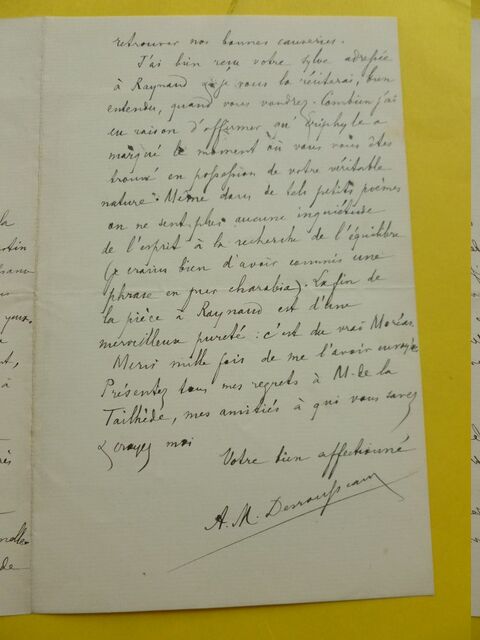 retrouver nos bonnes causeries.
J'ai bien reçu votre sylve adressée
à Raynaud et je vous la réciterai, bien
entendu, quand vous voudrez. Combien j'ai
eu raison d'affirmer qu'Eriphyle a
marqué le moment où vous vous êtes
trouvé en possession de votre véritable
nature. Même dans de tels petits poèmes
on ne sent plus aucune inquiétude
de l'esprit à la recherche de l'équilibre
(je crains bien d'avoir commis une
phrase en pur charabia). La fin de
la pièce à Raynaud est d'une
merveilleuse pureté : c'est du vrai Moréas.
Merci mille fois de me l'avoir envoyée
Présentez tous mes regrets à M. de la
Tailhède, mes amitiés à qui vous savez
& croyez moi
Votre bien affectionné
A. M. Desrousseaux
la
à
de